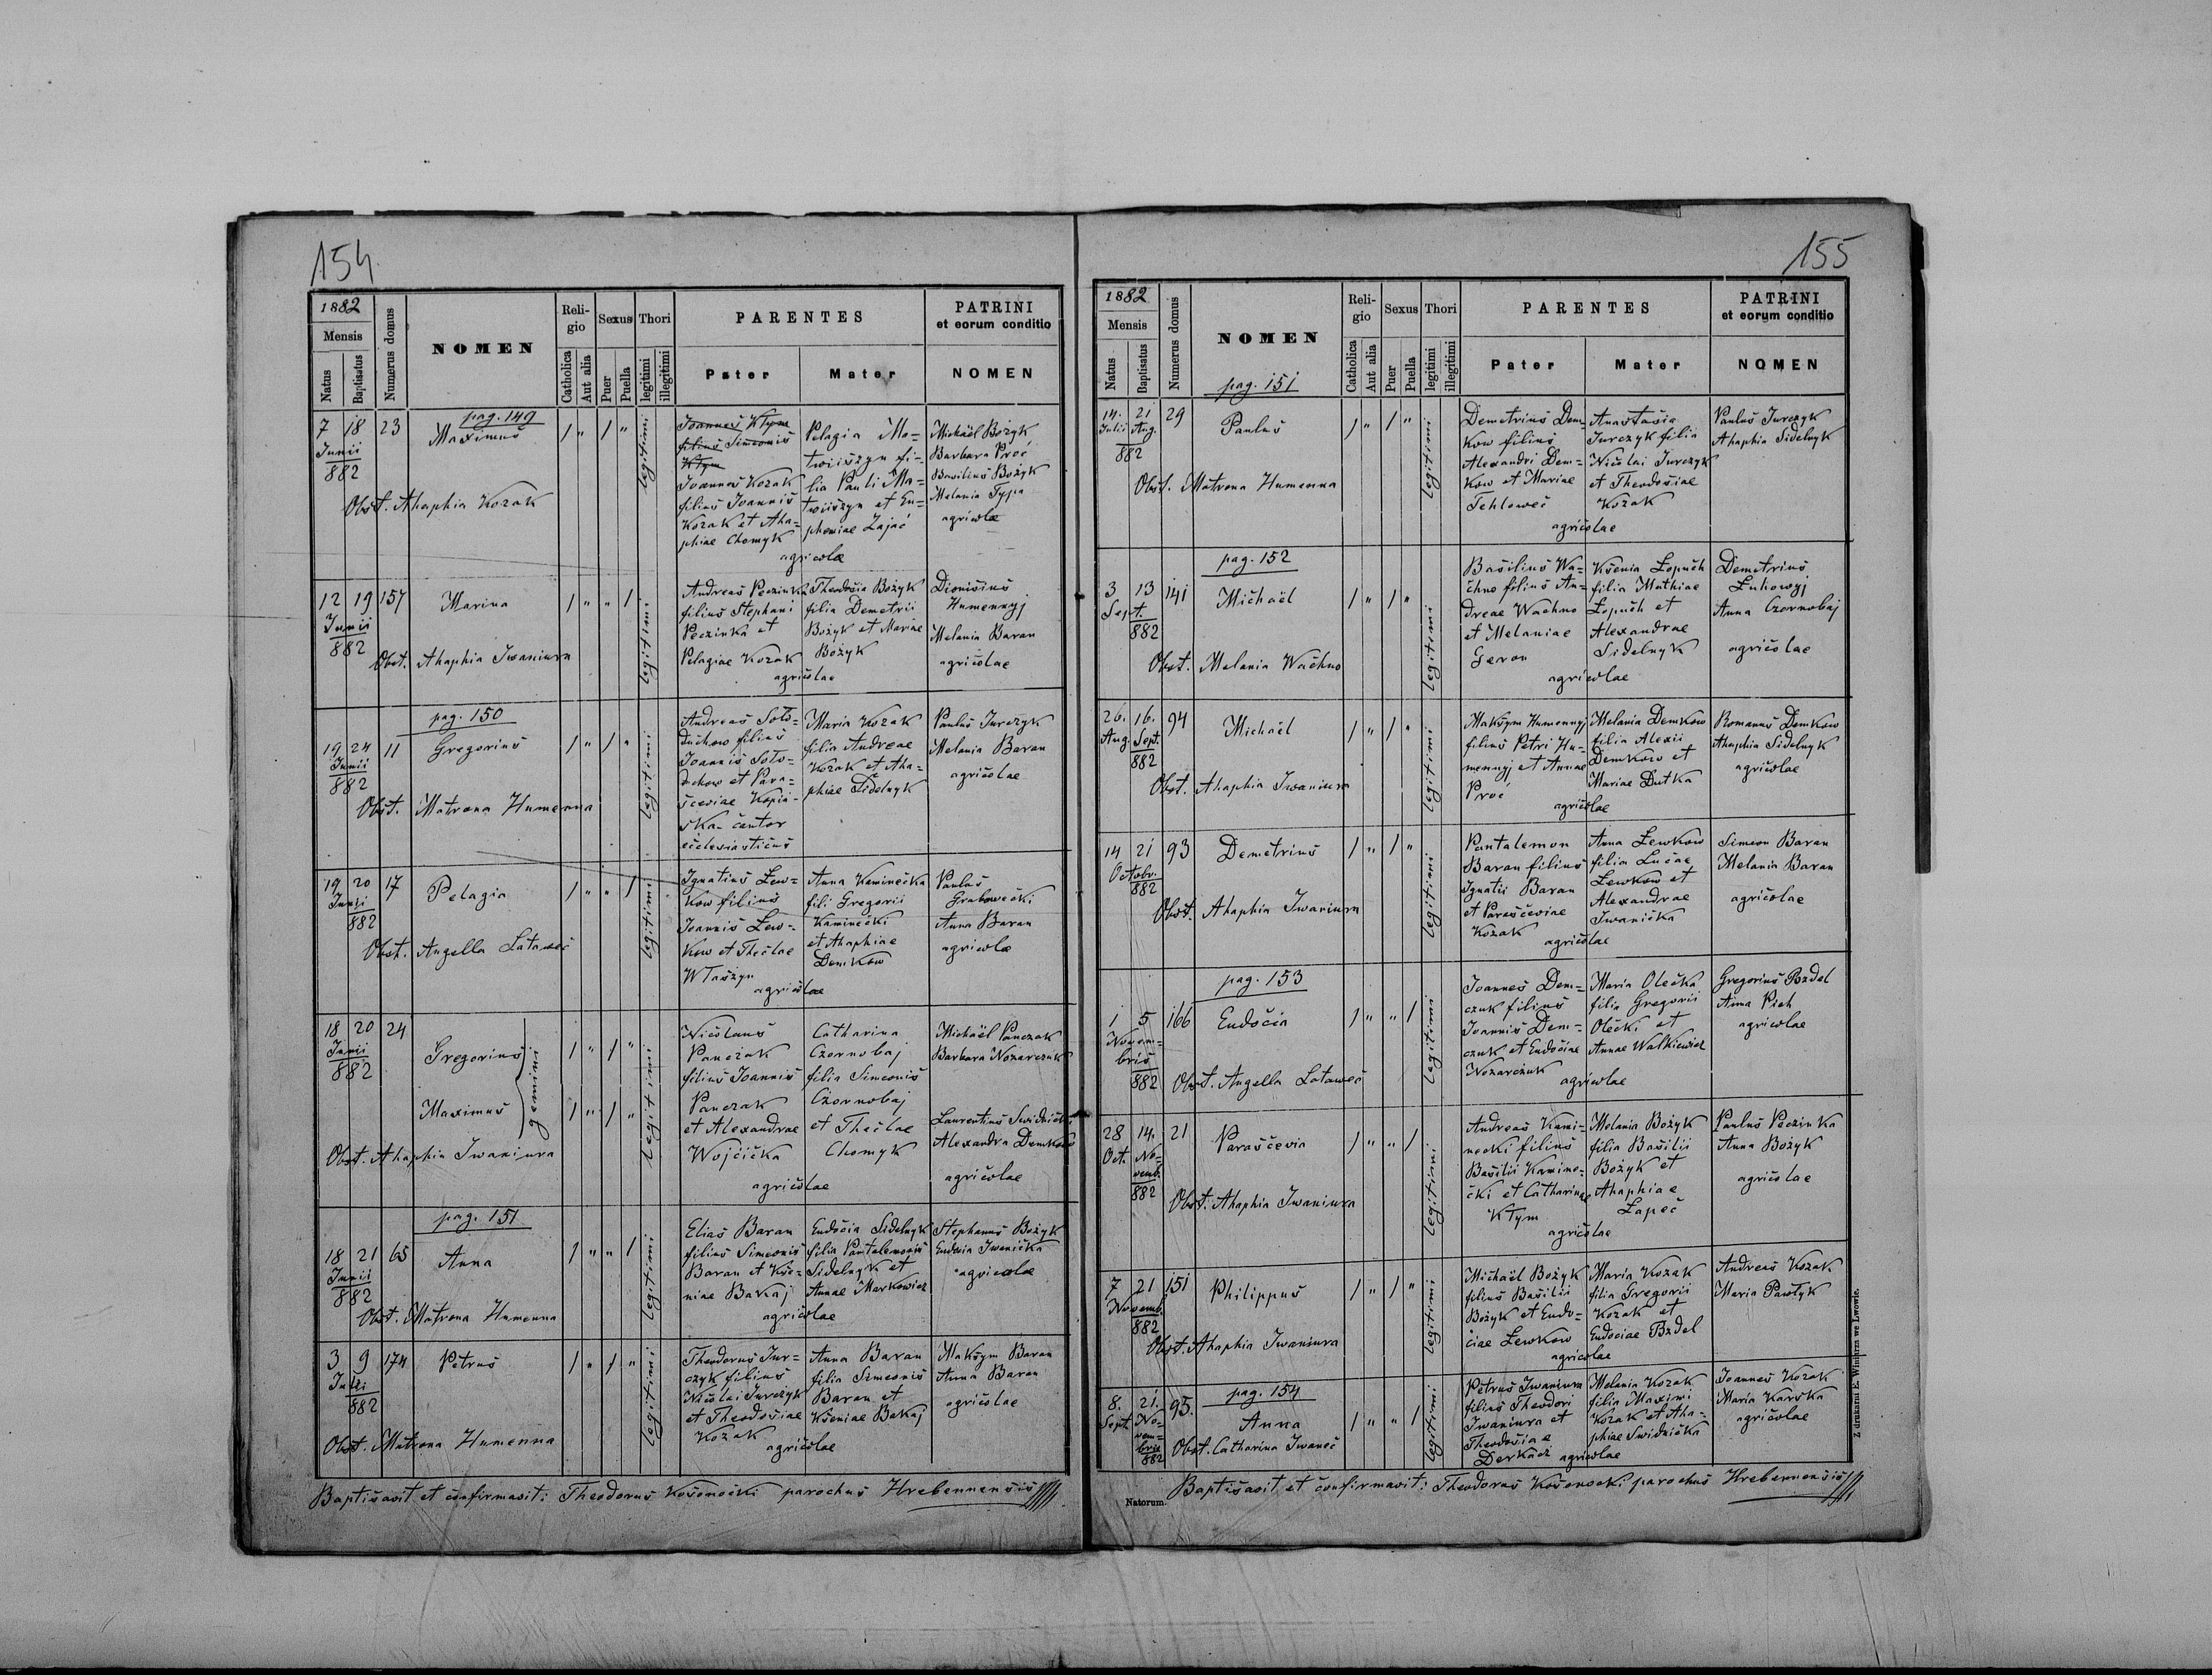 154
1882
Mensis
Natus
Baptisatus
Numerus domus
NOMEN
Reli-
gio
Catholica
Aut alia
Sexus
Puer
Puella
Thori
legitimi
illegitimi
PARENTES
Pater
Mater
PATRINI
et eorum conditio
NOMEN
pag. 149
7 18 23
Junii
882
Maximus
Obst. Ahaphia Kozak
legitimi
Joannes Kłym
filius Simeonis
Kłym
Joannes Kozak
filius Joannis
Kozak et Aha-
phiae Chomyk
agricolae
Pelagia Ma-
twiiszyn fi-
lia Pauli Ma-
twiiszyn et Eu-
phemiae Zajać
Michaël Bożyk
Barbara Proć
Basilius Bożyk
Melania Typa
agricolae
12 19 157
Junii
882
Marina
Obst. Ahaphia Iwaniura
legitimi
Andreas Peczinka
filius Stephani
Peczinka et
Pelagiae Kozak
agricolae
Theodosia Bożyk
filia Demetrii
Bożyk et Mariae
Bożyk
Dionisius
Humennyj
Melania Baran
agricolae
pag. 150
19 24 11
Junii
882
Gregorius
Obst. Matrona Humenna
legitimi
Andreas Soło-
duchow filius
Joannis Soło-
duchow et Para-
sceviae Kopia-
ska - cantor
ecclesiasticus
Maria Kozak
filia Andreae
Kozak et Aha-
phiae Sidelnyk
Paulus Jurczyk
Melania Baran
agricolae
19 20 17
Junii
882
Pelagia
Obst. Angella Lataweć
legitimi
Ignatius Lew-
kow filius
Joannis Lew-
kow et Theclae
Właszyn
agricolae
Anna Kaminecka
fili Gregorii
Kaminecki
et Ahaphiae
Demkow
Paulus
Grabowecki
Anna Baran
agricolae
18 20 24
Junii
882
Gregorius
Maximus
gemini
Obst. Ahaphia Iwaniura
legitimi
Nicolaus
Panczak
filius Joannis
Panczak
et Alexandrae
Wojcicka
agricolae
Catharina
Czornobaj
filia Simeonis
Czornobaj
et Theclae
Chomyk
Michaël Panczak
Barbara Nozarczuk
Laurentius Swidnicki
Alexandra Demkow
agricolae
pag. 151
18 21 65
Junii
882
Anna
Obst. Matrona Humenna
legitimi
Elias Baran
filius Simeonis
Baran et Kse-
niae Bakaj
agricolae
Eudocia Sidelnyk
filia Pantalemonis
Sidelnyk et
Annae Markowicz
Stephanus Bożyk
Eudocia Iwanicka
agricolae
3 9 174
Julii
882
Petrus
Obst. Matrona Humenna
legitimi
Theodorus Jur-
czyk filius
Nicolai Jurczyk
et Theodosiae
Kozak
agricolae
Anna Baran
filia Simeonis
Baran et
Kseniae Bakaj
Maksym Baran
Anna Baran
agricolae
Baptisavit et confirmavit: Theodorus Kosonocki parochus Hrebennensis
155
1882
Mensis
Natus
Baptisatus
Numerus domus
NOMEN
Reli-
gio
Catholica
Aut alia
Sexus
Puer
Puella
Thori
legitimi
illegitimi
PARENTES
Pater
Mater
PATRINI
et eorum conditio
NOMEN
pag. 151
14. 21 29
Julii Aug.
882
Paulus
Obst. Matrona Humenna
legitimi
Demetrius Dem-
kow filius
Alexandri Dem-
kow et Mariae
Tehloweć
agricolae
Anastasia
Jurczyk filia
Nicolai Jurczyk
et Theodosiae
Kozak
Paulus Jurczyk
Ahaphia Sidelnyk
pag. 152
3 13 141
Sept.
882
Michaël
Obst. Melania Wachno
legitimi
Basilius Wa-
chno filius An-
dreae Wachno
et Melaniae
Geron
agricolae
Ksenia Łopuch
filia Mathiae
Łopuch et
Alexandrae
Sidelnyk
Demetrius
Łukowyj
Anna Czornobaj
agricolae
26. 16. 94
Aug. Sept.
882
Michaël
Obst. Ahaphia Iwaniura
legitimi
Maksym Humennyj
filius Petri Hu-
mennyj et Annae
Proć
agricolae
Melania Demkow
filia Alexii
Demkow et
Mariae Dutka
Romanus Demkow
Ahaphia Sidelnyk
agricolae
14 21 93
Octobr.
882
Demetrius
Obst. Ahaphia Iwaniura
legitimi
Pantalemon
Baran filius
Ignatii Baran
et Parasceviae
Kozak
agricolae
Anna Lewkow
filia Lucae
Lewkow et
Alexandrae
Iwanicka
Simeon Baran
Melania Baran
agricolae
pag. 153
1 5 166
Novem-
bris
882
Eudocia
Obst. Angella Lataweć
legitimi
Joannes Dem-
czuk filius
Joannis Dem-
czuk et Eudociae
Nozarczuk
agricolae
Maria Olecka
filia Gregorii
Olecki et
Annae Walkiewicz
Gregorius Bzdel
Anna Pich
agricolae
28 14. 21
Oct. No-
vemb.
882
Parascevia
Obst. Ahaphia Iwaniura
legitimi
Andreas Kami-
necki filius
Basilii Kamine-
cki et Catharinae
Kłym
agricolae
Melania Bożyk
filia Basilii
Bożyk et
Ahaphiae
Łapeć
Paulus Peczinka
Anna Bożyk
agricolae
7 21 151
Novemb.
882
Philippus
Obst. Ahaphia Iwaniura
legitimi
Michaël Bożyk
filius Basilii
Bożyk et Eudo-
ciae Lewkow
agricolae
Maria Kozak
filia Gregorii
Kozak et
Eudociae Bzdel
Andreas Kozak
Maria Pawłyk
pag. 154
8. 21. 95.
Sept. No-
vem-
bris
882
Anna
Obst. Catharina Iwaneć
legitimi
Petrus Iwaniura
filius Theodori
Iwaniura et
Theodosiae
Derkacz agricolae
Melania Kozak
filia Maximi
Kozak et Aha-
phiae Swidnicka
Joannes Kozak
Maria Karska
agricolae
Baptisavit et confirmavit: Theodorus Kosonocki parochus Hrebennensis
Natorum.
Z drukarni E. Winiarza we Lwowie.